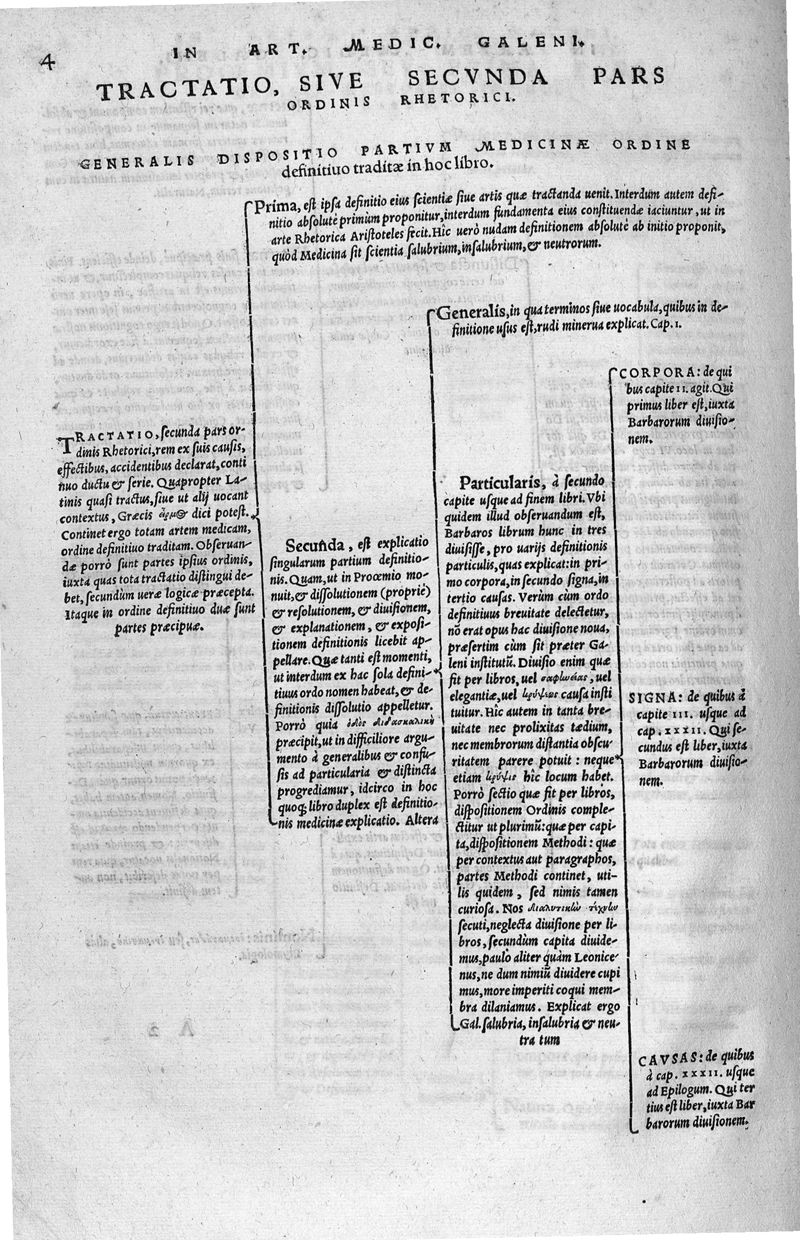 4
IN ART. MEDIC. GALENI.
TRACTATIO, SIVE SECVNDA PARS
ORDINIS RHETORICI.
GENERALIS DISPOSITIO PARTIVM MEDICINÆ ORDINE
definitiuo traditæ in hoc libro.
Prima, est ipsa definitio eius scientiæ siue artis quæ tractanda uenit. Interdum autem defi-
nitio absolutè primùm proponitur, interdum fundamenta eius constituendæ iaciuntur, ut in
arte Rhetorica Aristoteles fecit. Hîc uerò nudam definitionem absolutè ab initio proponit,
quòd Medicina sit scientia salubrium, insalubrium, & neutrorum.
TRACTATIO, secunda pars or-
dinis Rhetorici, rem ex suis causis,
effectibus, accidentibus declarat, conti
nuo ductu & serie. Quapropter La-
tinis quasi tractus, siue ut alij uocant
contextus, Græcis dici potest.
Continet ergo totam artem medicam,
ordine definitiuo traditam. Obseruan-
dæ porrò sunt partes ipsius ordinis,
iuxta quas tota tractatio distingui de-
bet, secundùm ueræ logicæ præcepta.
Itaque in ordine definitiuo duæ sunt
partes præcipuæ.
Secunda, est explicatio
singularum partium definitio-
nis. Quam, ut in Proœmio mo-
nuit, & dissolutionem (propriè)
& resolutionem, & diuisionem,
& explanationem, & exposi-
tionem definitionis licebit ap-
pellare. Quæ tanti est momenti,
ut interdum ex hac sola defini-
tiuus ordo nomen habeat, & de-
finitionis dissolutio appelletur.
Porrò quia ὁδὸς διδασκαλικὴ
præcipit, ut in difficiliore argu-
mento à generalibus & confu-
sis ad particularia & distincta
progrediamur, idcirco in hoc
quoq; libro duplex est definitio-
nis medicinæ explicatio. Altera
Generalis, in qua terminos siue uocabula, quibus in de-
finitione usus est, rudi minerua explicat. Cap. I.
Particularis, à secundo
capite usque ad finem libri. Vbi
quidem illud obseruandum est,
Barbaros librum hunc in tres
diuisisse, pro uarijs definitionis
particulis, quas explicat: in pri-
mo corpora, in secundo signa, in
tertio causas. Verùm cùm ordo
definitiuus breuitate delectetur,
nō erat opus hac diuisione noua,
præsertim cùm sit præter Ga-
leni institutū. Diuisio enim quæ
fit per libros, uel σαφηνείας, uel
elegantiæ, uel κρύψεως causa insti
tuitur. Hîc autem in tanta bre-
uitate nec prolixitas tædium,
nec membrorum distantia obscu-
ritatem parere potuit: neque
etiam κρύψις hîc locum habet.
Porrò sectio quæ fit per libros,
dispositionem Ordinis comple-
ctitur ut plurimū: quæ per capi-
ta, dispositionem Methodi: quæ
per contextus aut paragraphos,
partes Methodi continet, uti-
lis quidem, sed nimis tamen
curiosa. Nos διαλυτικὼ τέχνω
secuti, neglecta diuisione per li-
bros, secundùm capita diuide-
mus, paulò aliter quàm Leonice-
nus, ne dum nimiū diuidere cupi
mus, more imperiti coqui mem-
bra dilaniamus. Explicat ergo
Gal. salubria, insalubria & neu-
tra tum
CORPORA: de qui
bus capite II. agit. Qui
primus liber est, iuxta
Barbarorum diuisio-
nem.
SIGNA: de quibus à
capite III. usque ad
cap. XXXII. Qui se-
cundus est liber, iuxta
Barbarorum diuisio-
nem.
CAVSAS: de quibus
à cap. XXXII. usque
ad Epilogum. Qui ter
tius est liber, iuxta Bar
barorum diuisionem.